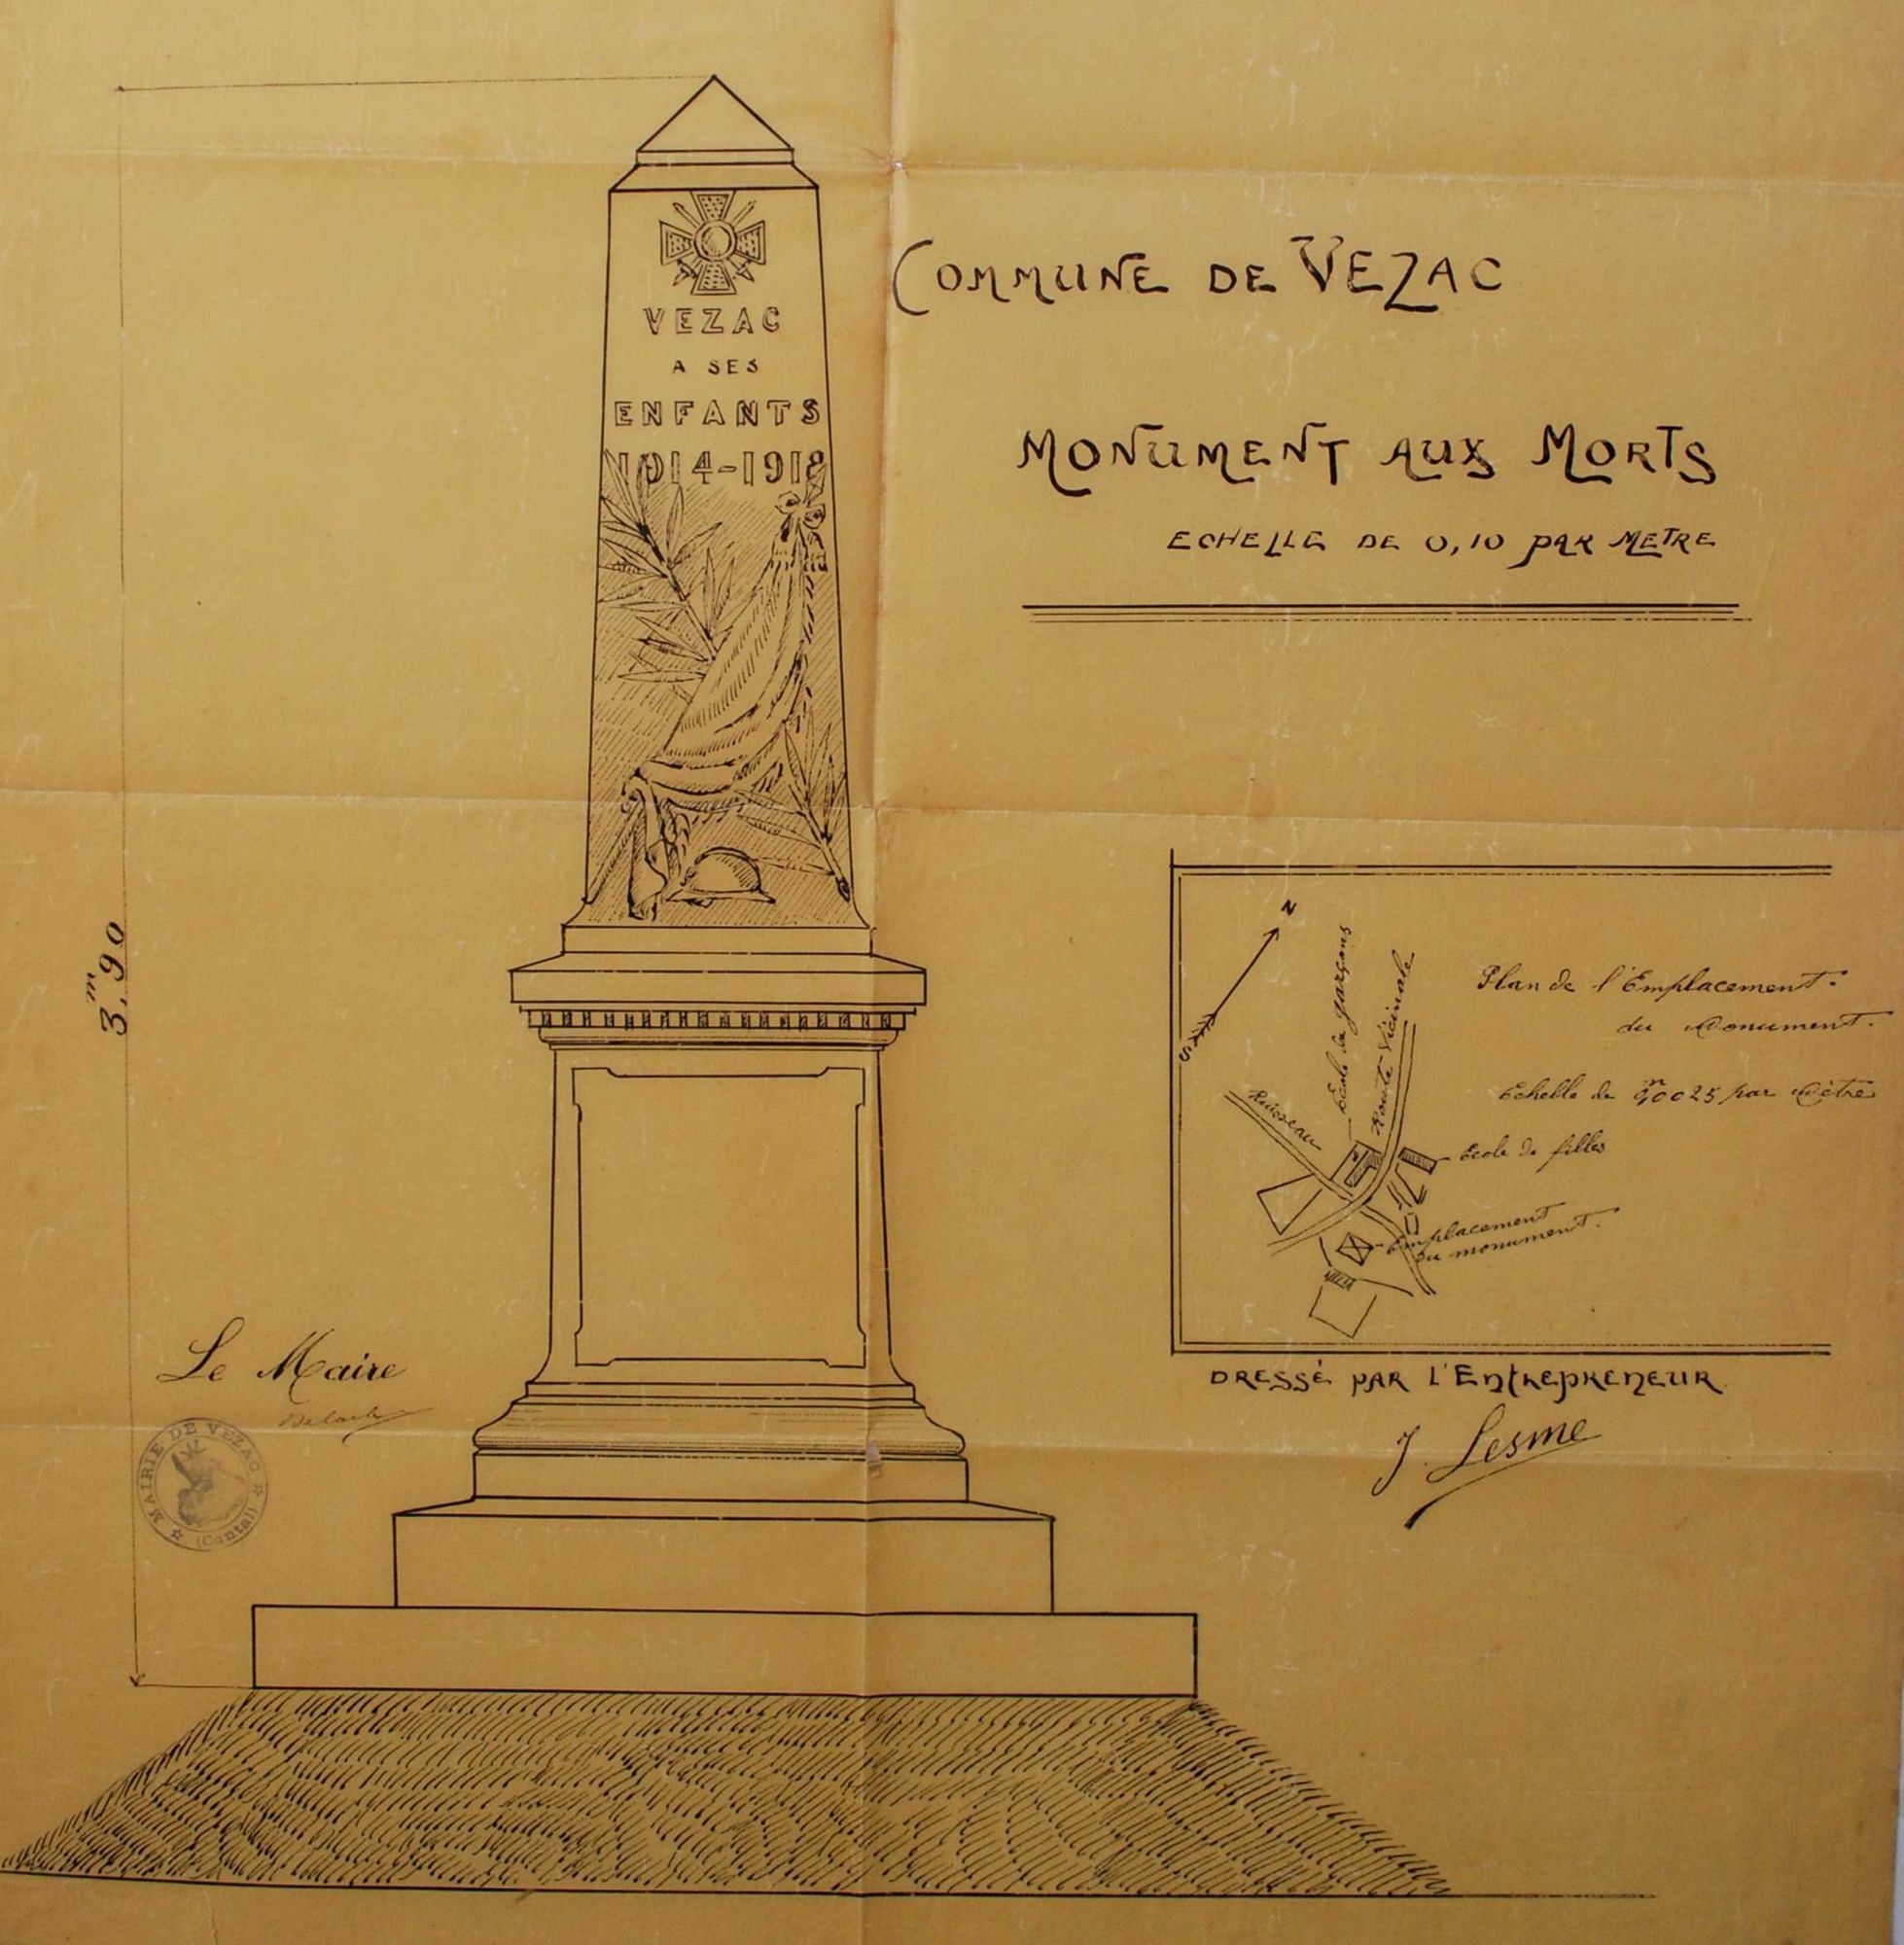 VEZAC
A SES
ENFANTS
1914-1918
COMMUNE DE VEZAC
MONUMENT AUX MORTS
ECHELLE DE 0,10 PAR METRE
3,m90
N
S
Ecole de garçons
Route Vicinale
Ruisseau
Plan de l'Emplacement.
du Monument.
Echelle de 0m0025 par Mètre
Ecole de filles
Emplacement
du monument.
Le Maire
MAIRIE DE VEZAC
(Cantal)
DRESSÉ PAR L'ENTREPRENEUR
J. Lesme